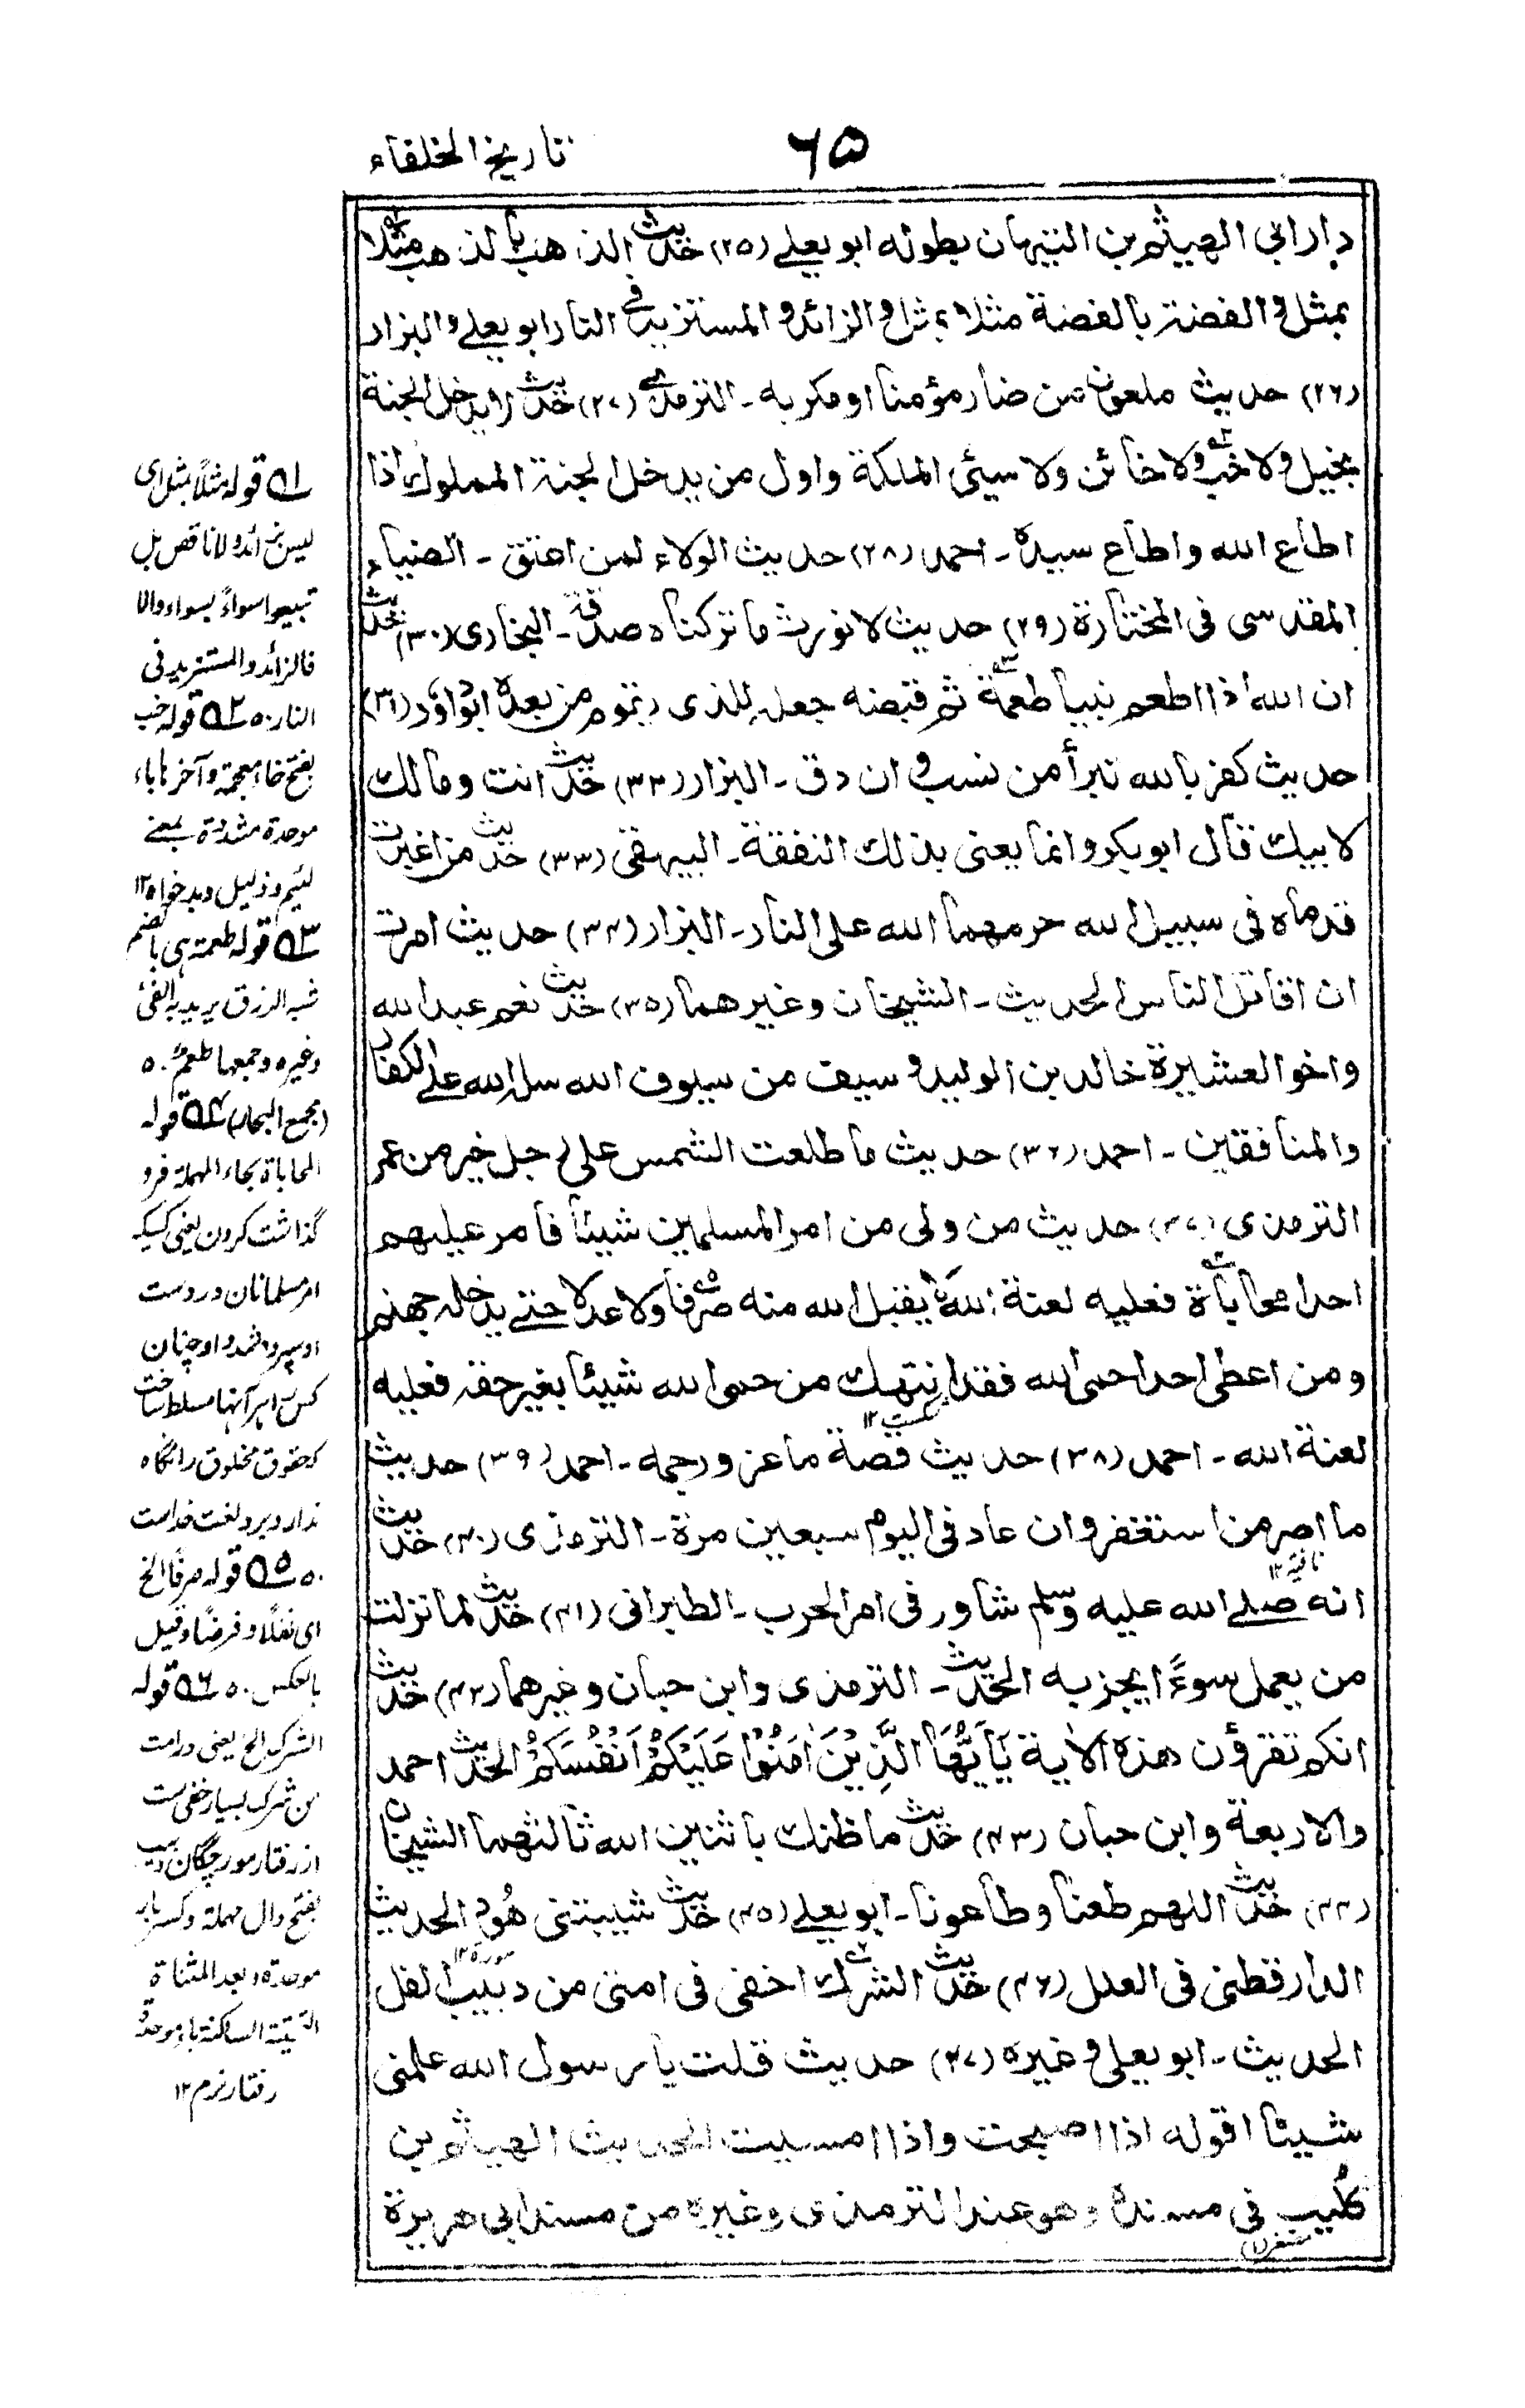 ٦٥
تاريخ الخلفاء
دار ابى الهيثم بن التيهان بطوله ابو يعلى (٢٥) حديث الذهب بالذهب مثلا
بمثل والفضة بالفضة مثلا بمثل والزائد والمستزيد فى النار ابو يعلى والبزار
(٢٦) حديث ملعون من ضار مؤمنا او مكر به - الترمذى (٢٧) حديث لا يدخل الجنة
بخيل ولا خب ولا خائن ولا سيئى الملكة واول من يدخل الجنة المملوك اذا
اطاع الله واطاع سيده - احمد (٢٨) حديث الولاء لمن اعتق - الضياء
المقدسى فى المختارة (٢٩) حديث لا نورث ما تركناه صدقة - البخارى (٣٠) حديث
ان الله اذا اطعم نبيا طعمة ثم قبضه جعله للذى يقوم من بعده ابوداود (٣١)
حديث كفر بالله تبرأ من نسب وان دق - البزار (٣٢) حديث انت ومالك
لابيك قال ابو بكر وانما يعنى بذلك النفقة - البيهقى (٣٣) حديث من اغبرت
قدماه فى سبيل الله حرمهما الله على النار - البزار (٣٤) حديث امرت
ان اقاتل الناس الحديث - الشيخان وغيرهما (٣٥) حديث نعم عبد الله
واخو العشيرة خالد بن الوليد وسيف من سيوف الله سله الله على الكفار
والمنافقين - احمد (٣٦) حديث ما طلعت الشمس على رجل خير من عمر
الترمذى (٣٧) حديث من ولى من امر المسلمين شيئا فامر عليهم
احدا محاباة فعليه لعنة الله لا يقبل الله منه صرفا ولا عدلا حتى يدخله جهنم
ومن اعطى احدا حمى الله فقد انتهك من حمى الله شيئا بغير حقه فعليه
لعنة الله - احمد (٣٨) حديث قصة ماعز ورجمه - احمد (٣٩) حديث
ما اصر من استغفر وان عاد فى اليوم سبعين مرة - الترمذى (٤٠) حديث
انه صلى الله عليه وسلم شاور فى امر الحرب - الطبرانى (٤١) حديث لما نزلت
من يعمل سوءًا يجز به الحديث - الترمذى وابن حبان وغيرهما (٤٢) حديث
انكم تقرؤن هذه الآية يَاَيُّهَا الَّذِيْنَ اٰمَنُوْا عَلَيْكُمْ اَنْفُسَكُمْ الحديث احمد
والاربعة وابن حبان (٤٣) حديث ما ظنك باثنين الله ثالثهما الشيخان
(٤٤) حديث اللهم طعنا وطاعونا - ابو يعلى (٤٥) حديث شيبتنى هُود الحديث
الدارقطنى فى العلل (٤٦) حديث الشرك اخفى فى امتى من دبيب النمل
الحديث - ابو يعلى وغيره (٤٧) حديث قلت يا رسول الله علمنى
شيئا اقوله اذا اصبحت واذا امسيت الحديث الهيثم بن
كُليب فى مسنده وهو عند الترمذى وغيره من مسند ابى هريرة
١ قوله مثلًا بمثل اى
ليس بزائد ولا ناقص بل
تبيعوا سواءً بسواء والا
فالزائد والمستزيد فى
النار ٢ قوله خب
بفتح خاء معجمة وآخرها باء
موحدة مشددة بمعنى
لئيم وذليل وبدخواه ١٢
٣ قوله طعمة هى بالضم
شبه الرزق يريد به الفئ
وغيره وجمعها طعم
(مجمع البحار) ٤ قوله
المحاباة بحاء المهملة فرو
گذاشت كردن يعنى كسيكه
امر مسلمانان در دست
او سپرده شد و او چنان
كس را بر آنها مسلط ساخت
كه حقوق مخلوق را نگاه
ندارد بروے لعنت خداست
٥ قوله صرفًا الخ
اى نفلًا وفرضًا وقيل
بالعكس ٦ قوله
الشرك الخ يعنى در امت
من شرك بسيار خفى ست
از رفتار مورچگان دبيب
بفتح دال مهملة وكسر باء
موحدة وبعد المثناة
التحتية الساكنة باء موحدة
رفتار نرم ١٢